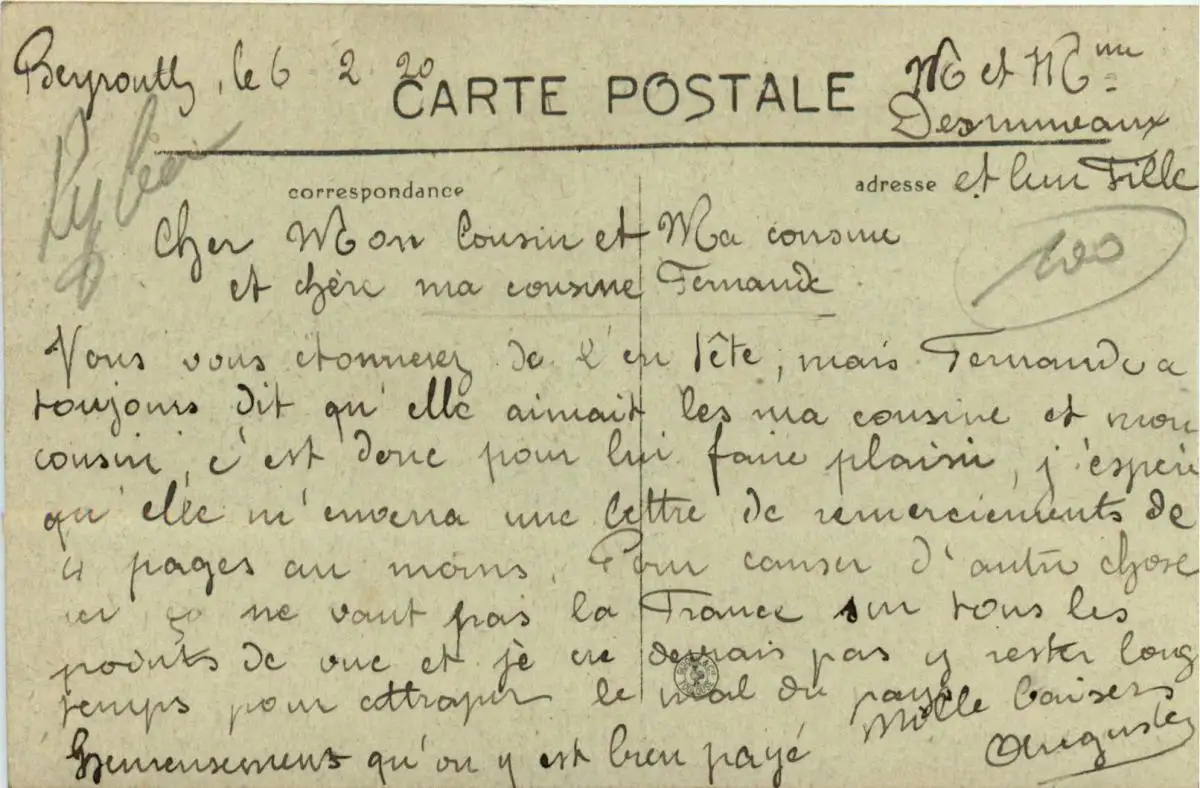 Beyrouth, le 6 2 20
CARTE POSTALE
M et Mme
Desruveaux
correspondance
adresse
et leur Fille
100
Cher Mon Cousin et Ma cousine
et chère ma cousine Fernande
Vous vous étonnerez de l'en tête, mais Fernande a
toujours dit qu'elle aimait les ma cousine et mon
cousin, c'est donc pour lui faire plaisir, j'espère
qu'elle m'enverra une lettre de remerciements de
4 pages au moins. Pour causer d'autre chose
ici ça ne vaut pas la France sur tous les
points de vue et je ne devrais pas y rester long
temps pour attraper le mal du pays
Heureusement qu'on y est bien payé
Mille baisers
Auguste